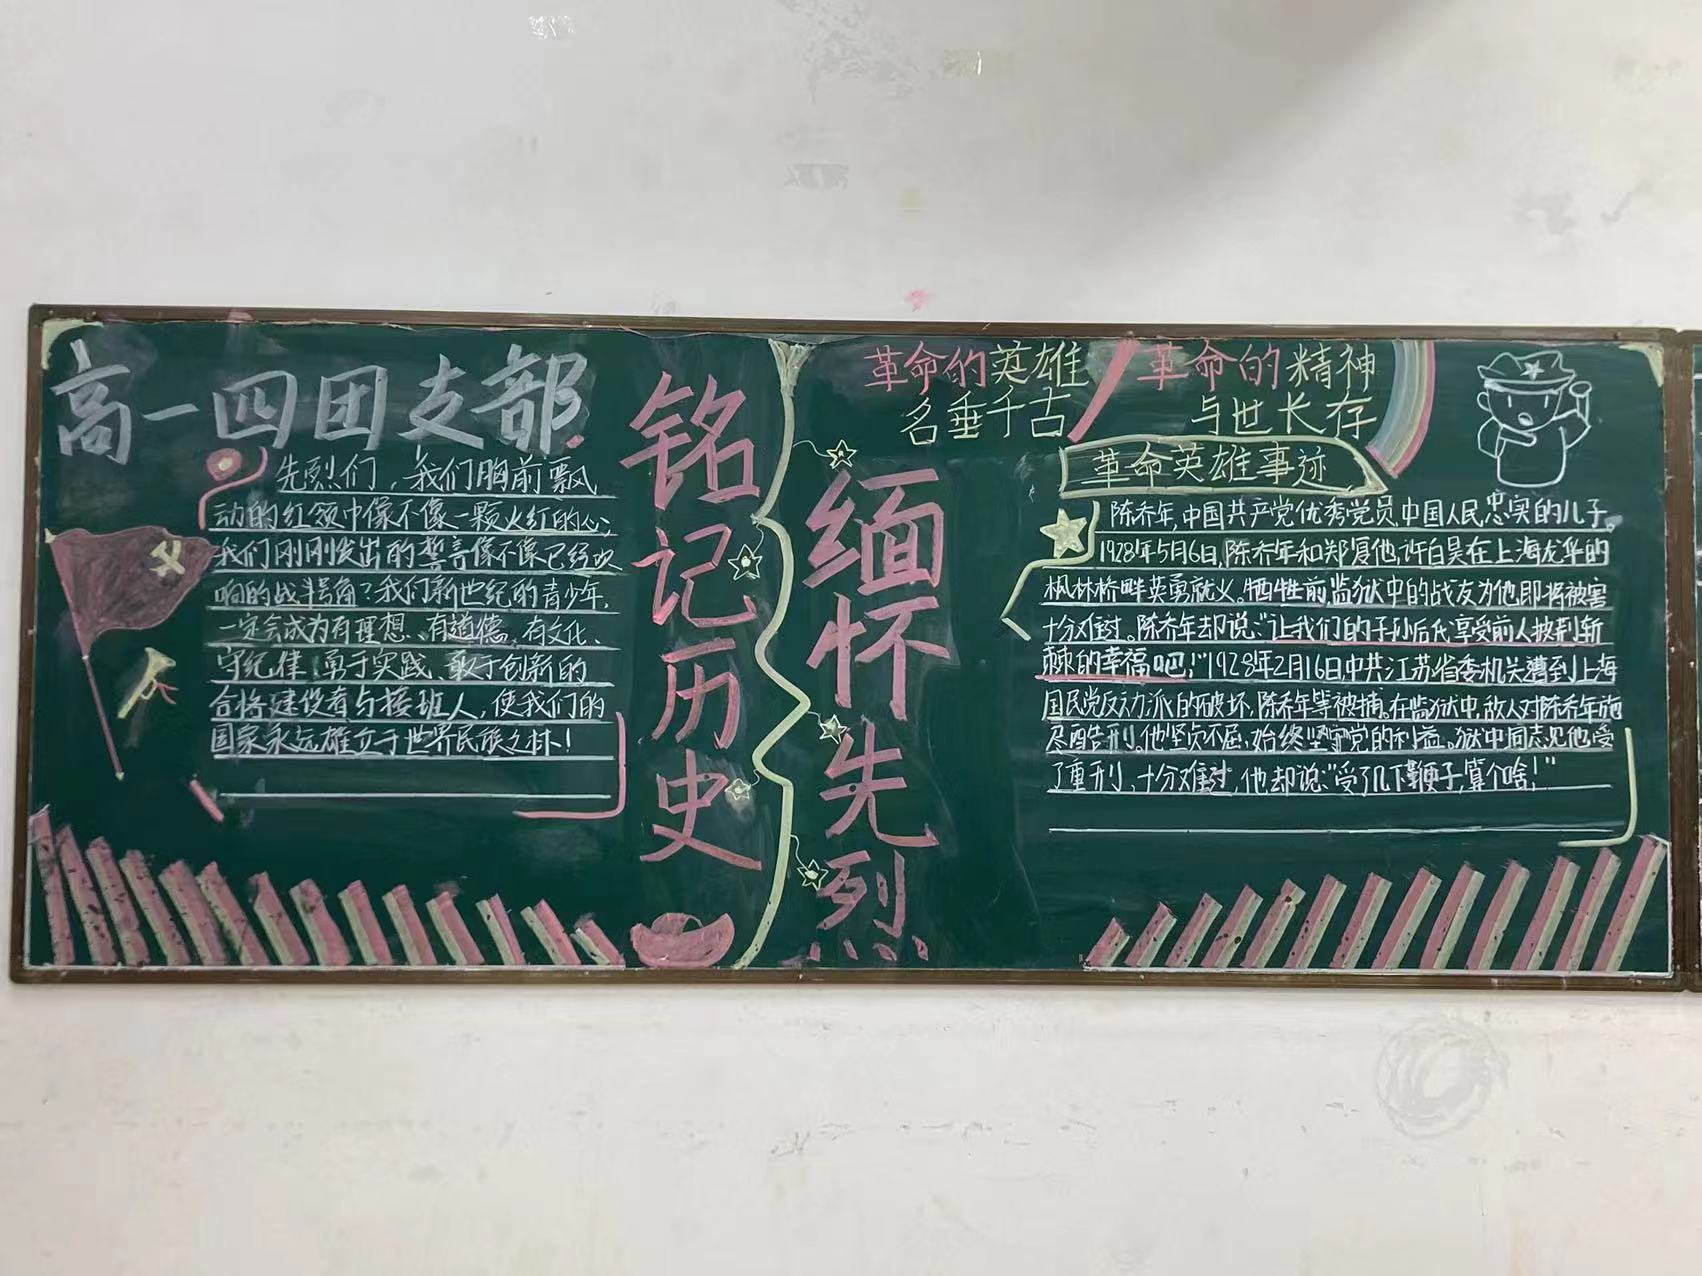 高一四团支部
先烈们，我们胸前飘
动的红领巾像不像一颗火红的心，
我们刚刚发出的誓言像不像已经吹
响的战斗号角？我们新世纪的青少年，
一定会成为有理想、有道德、有文化、
守纪律、勇于实践、敢于创新的
合格建设者与接班人，使我们的
国家永远雄立于世界民族之林！
铭记历史
缅怀先烈
革命的英雄
名垂千古
革命的精神
与世长存
革命英雄事迹
陈乔年，中国共产党优秀党员，中国人民忠实的儿子。
1928年5月6日，陈乔年和郑复他、许白昊在上海龙华的
枫林桥畔英勇就义。牺牲前，监狱中的战友为他即将被害
十分难过。陈乔年却说：“让我们的子孙后代享受前人披荆斩
棘的幸福吧！”1928年2月16日，中共江苏省委机关遭到上海
国民党反动派的破坏，陈乔年等被捕。在监狱中，敌人对陈乔年施
尽酷刑。他坚贞不屈，始终坚守党的利益。狱中同志见他受
了重刑，十分难过，他却说：“受了几下鞭子，算个啥！”